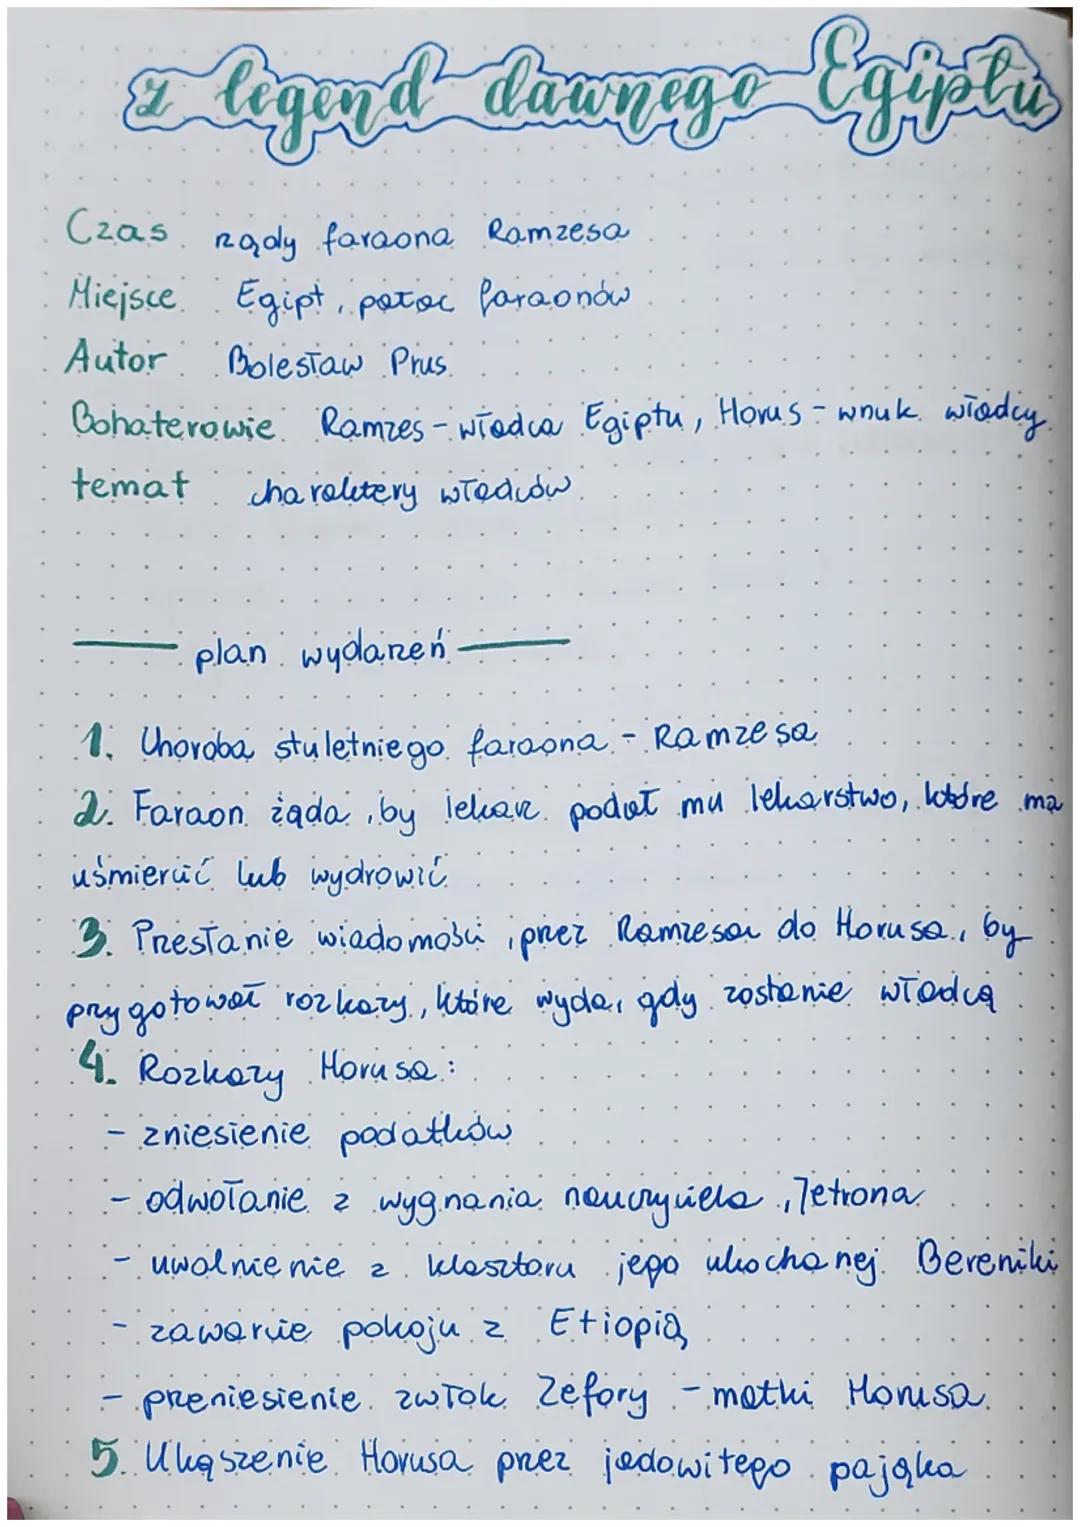 z legend dawnego Egiptu
Czas rządy faraona Ramzesa
Miejsce Egipt, pałac faraonów
Autor Bolesław Prus
Bohaterowie Ramzes - władca Egiptu, Horus - wnuk władcy
temat charaktery władców
plan wydarzeń
1. Choroba stuletniego faraona - Ramzesa
2. Faraon żąda, by lekarz podał mu lekarstwo, które ma
uśmiercić lub wydrowić
3. Przesłanie wiadomości, przez Ramzesa do Horusa, by
przygotował rozkazy, które wyda, gdy zostanie władcą
4. Rozkazy Horusa:
- zniesienie podatków
- odwołanie z wygnania nauczyciela, Jetrona
- uwolnienie z klasztoru jego ukochanej Bereniki
- zawarcie pokoju z Etiopią
- przeniesienie zwłok Zefory - matki Horusa
5. Ukąszenie Horusa przez jadowitego pająka